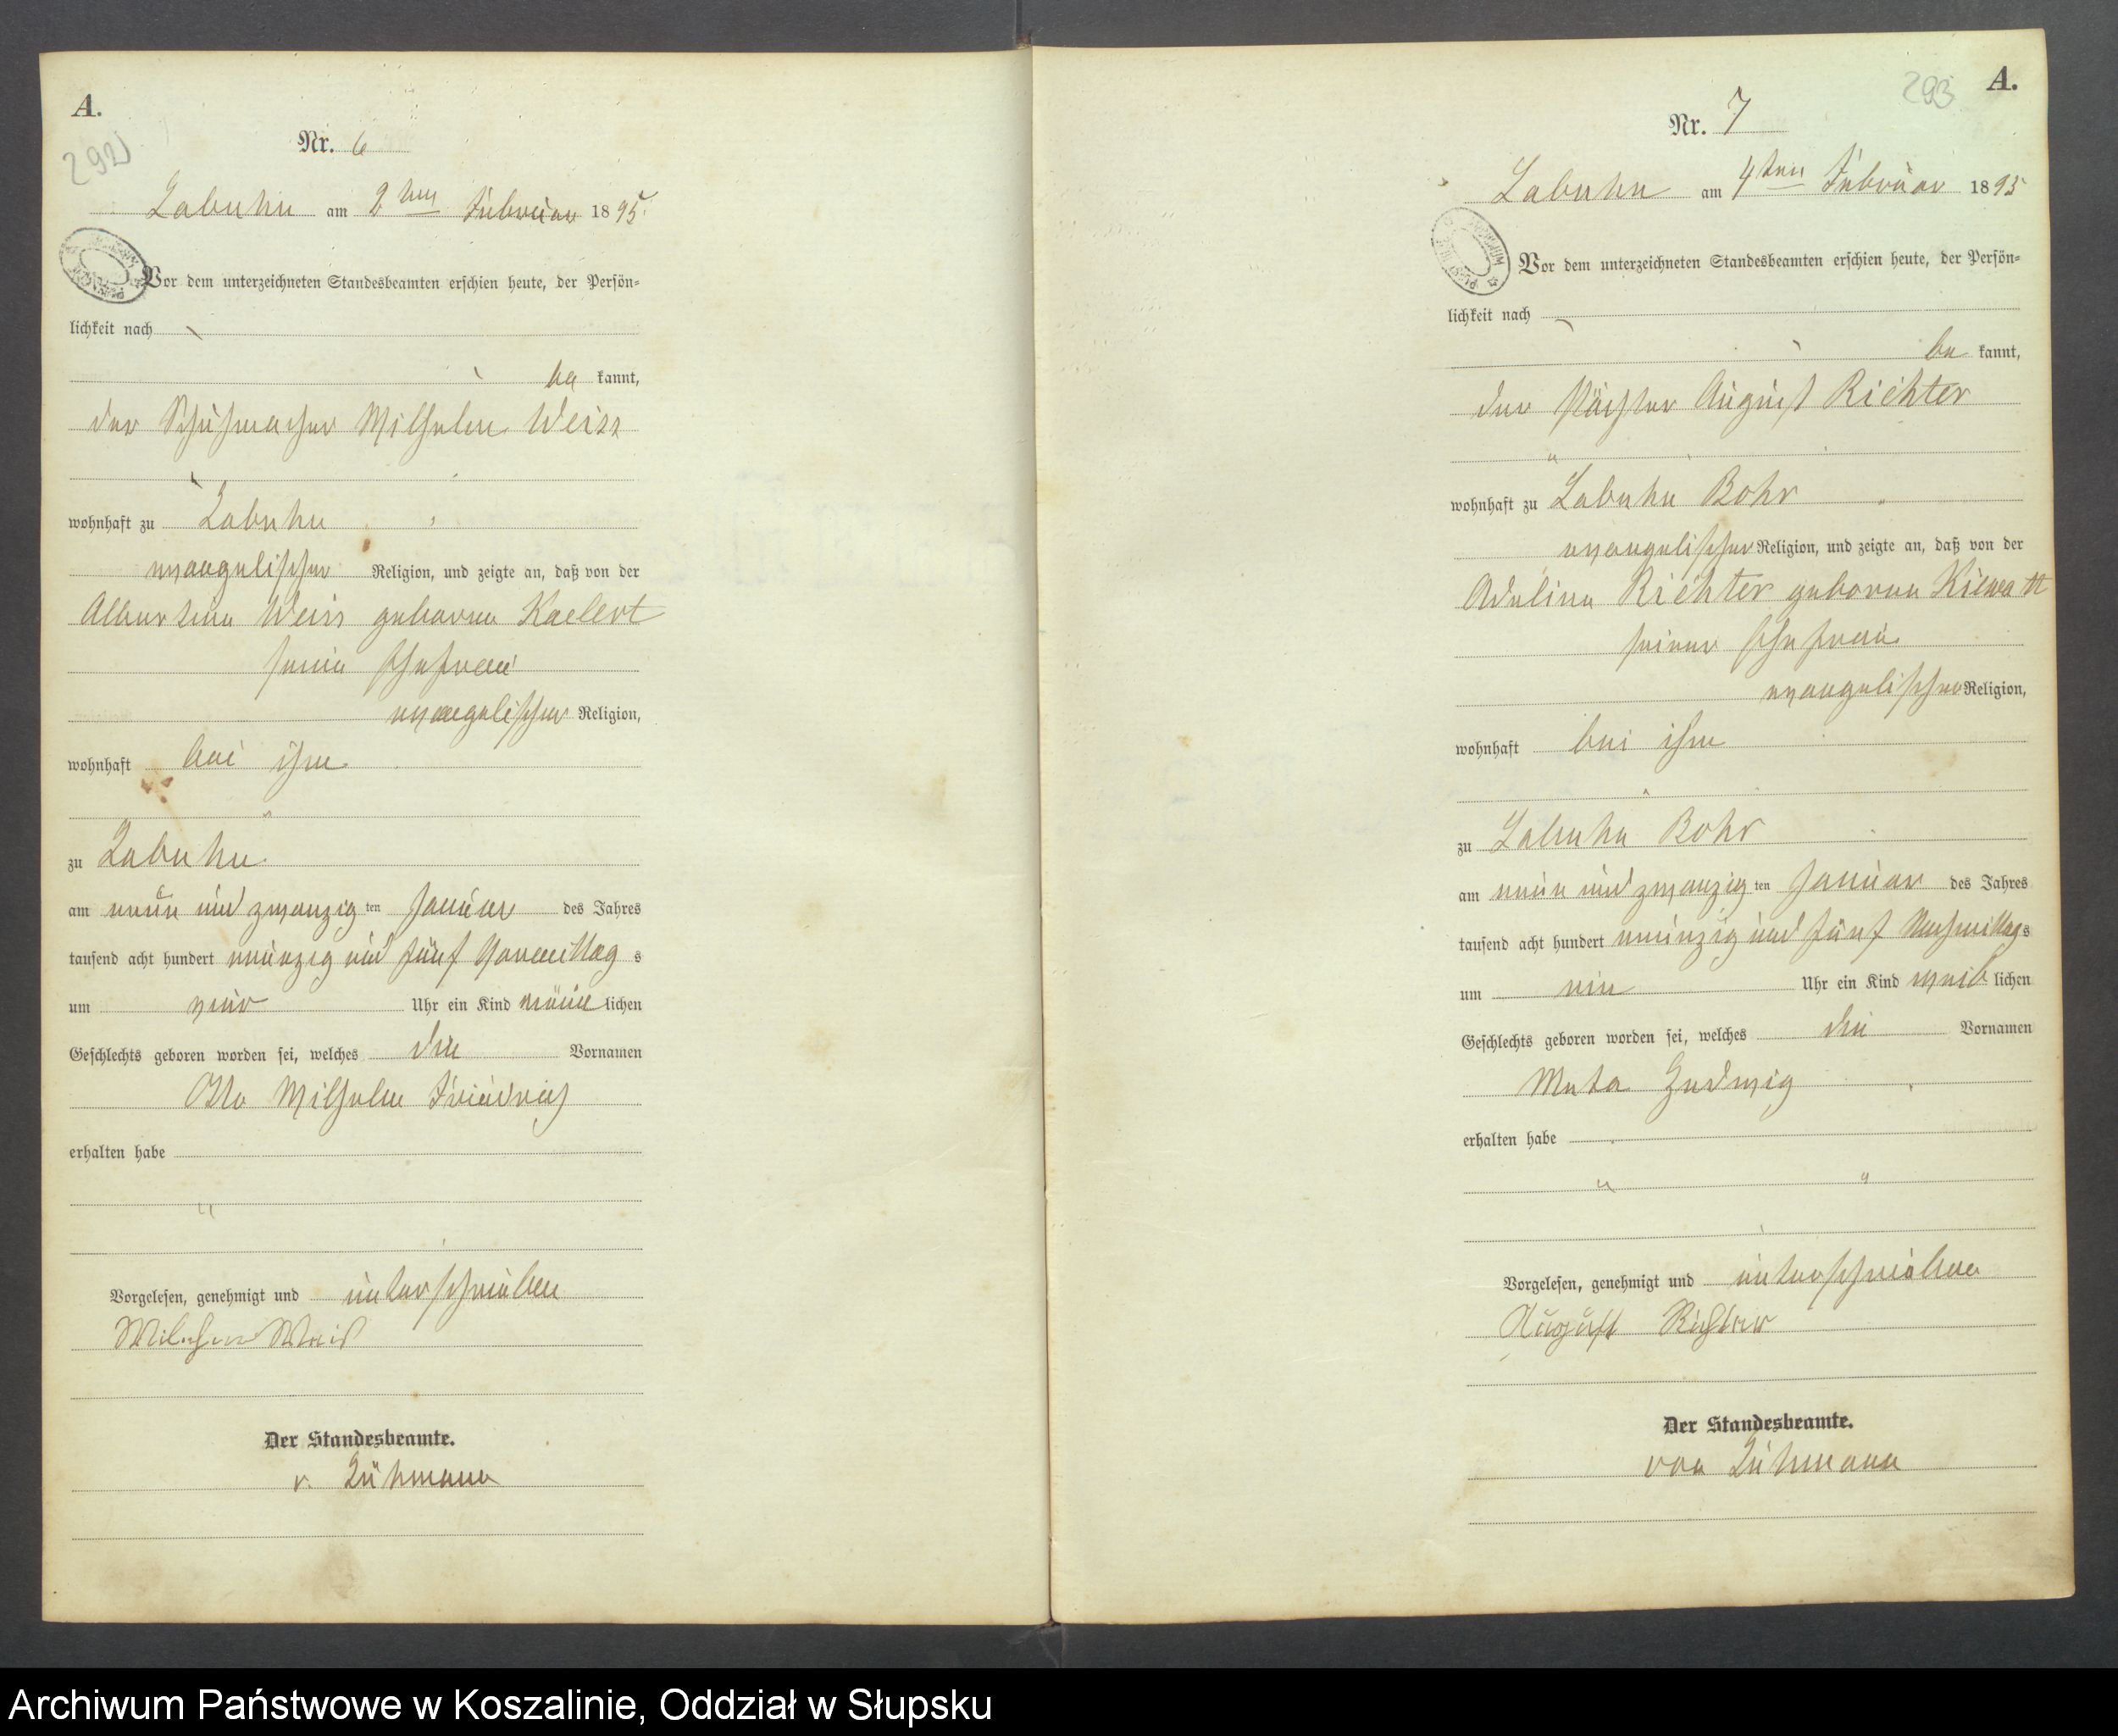 A.
292
Nr. 6
Labuhn am 2ten Februar 1895.
Vor dem unterzeichneten Standesbeamten erschien heute, der Persön=
lichkeit nach
be kannt,
der Schuhmacher Wilhelm Weiss
wohnhaft zu Labuhn
evangelischer Religion, und zeigte an, daß von der
Albertine Weiss geborne Kaellert
seine Ehefrau
evangelischer Religion,
wohnhaft bei ihm
zu Labuhn
am neun und zwanzig ten Januar des Jahres
tausend acht hundert neunzig und fünf Vormittag s
um vier Uhr ein Kind männ lichen
Geschlechts geboren worden sei, welches die Vornamen
Otto Wilhelm Friedrich
erhalten habe
Vorgelesen, genehmigt und unterschrieben
Wilhelm Weiß
Der Standesbeamte.
v. Zühmann
A.
293
Nr. 7
Labuhn am 4ten Februar 1895
Vor dem unterzeichneten Standesbeamten erschien heute, der Persön=
lichkeit nach
be kannt,
der Pächter August Richter
wohnhaft zu Labuhn Bohr
evangelischer Religion, und zeigte an, daß von der
Adeline Richter geborne Kiewatt
seiner Ehefrau
evangelischer Religion,
wohnhaft bei ihm
zu Labuhn Bohr
am neun und zwanzig ten Januar des Jahres
tausend acht hundert neunzig und fünf Nachmittag s
um ein Uhr ein Kind weib lichen
Geschlechts geboren worden sei, welches die Vornamen
Meta Hedwig
erhalten habe
Vorgelesen, genehmigt und unterschrieben
August Richter
Der Standesbeamte.
von Zühmann
Archiwum Państwowe w Koszalinie, Oddział w Słupsku